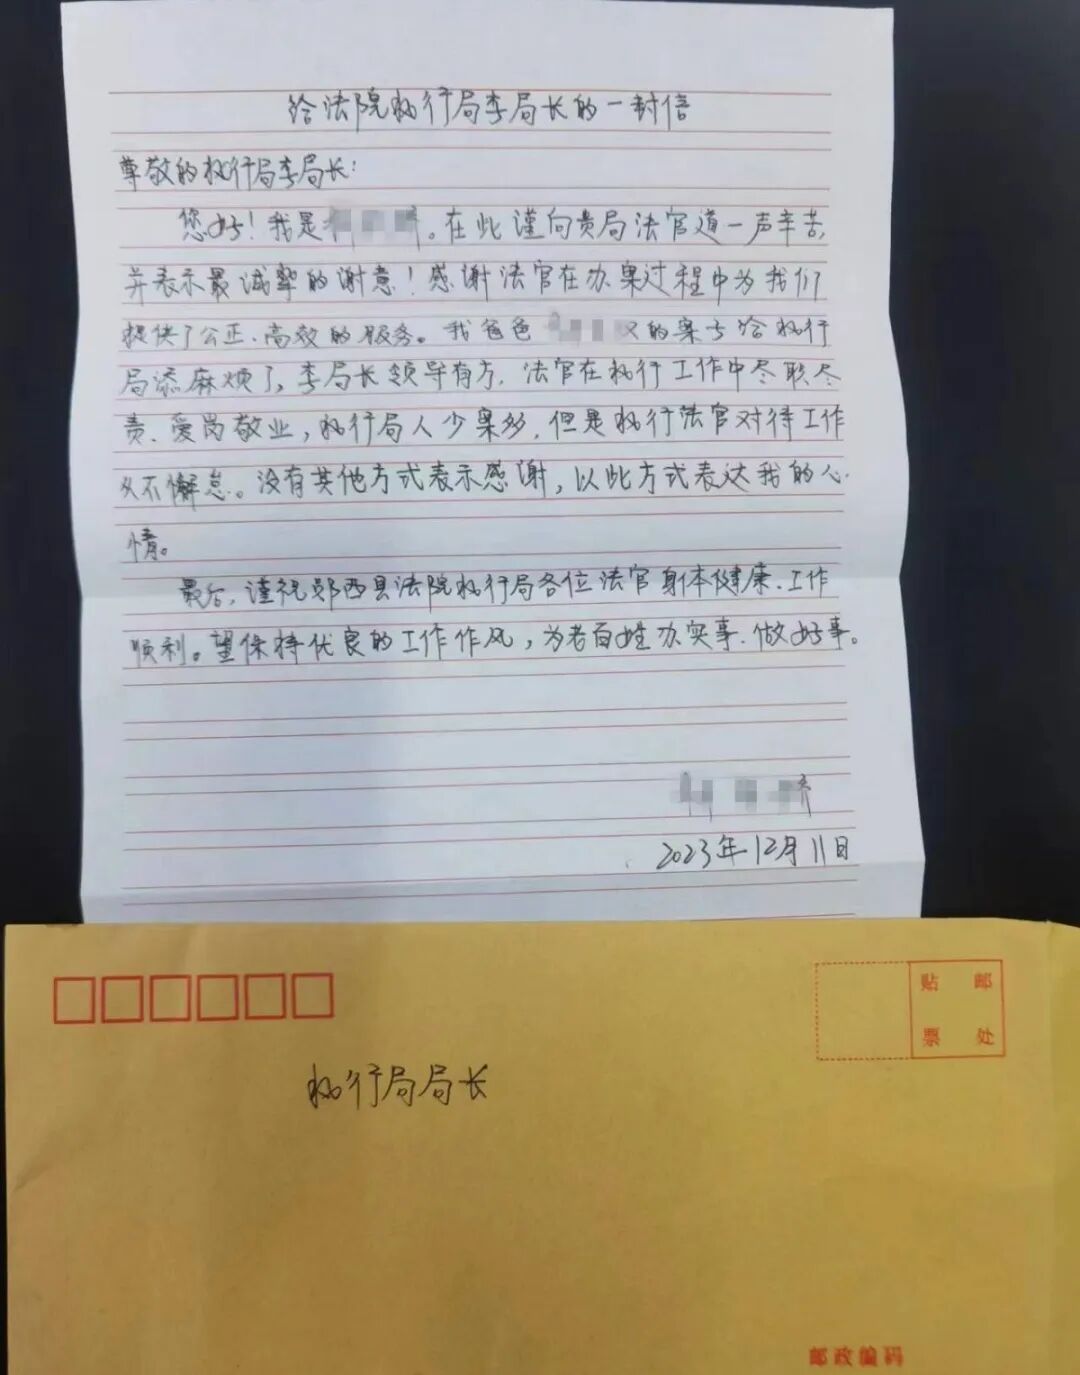 给法院执行局李局长的一封信
尊敬的执行局李局长:
您好!我是 。在此谨向贵局法官道一声辛苦,
并表示最诚挚的谢意!感谢法官在办案过程中为我们
提供了公正、高效的服务。我爸爸 的案子给执行
局添麻烦了,李局长领导有方,法官在执行工作中尽职尽
责、爱岗敬业,执行局人少案多,但是执行法官对待工作
从不懈怠。没有其他方式表示感谢,以此方式表达我的心
情。
最后,谨祝郧西县法院执行局各位法官身体健康、工作
顺利。望保持优良的工作作风,为老百姓办实事、做好事。
2023年12月11日
贴 邮
票 处
执行局局长
邮政编码